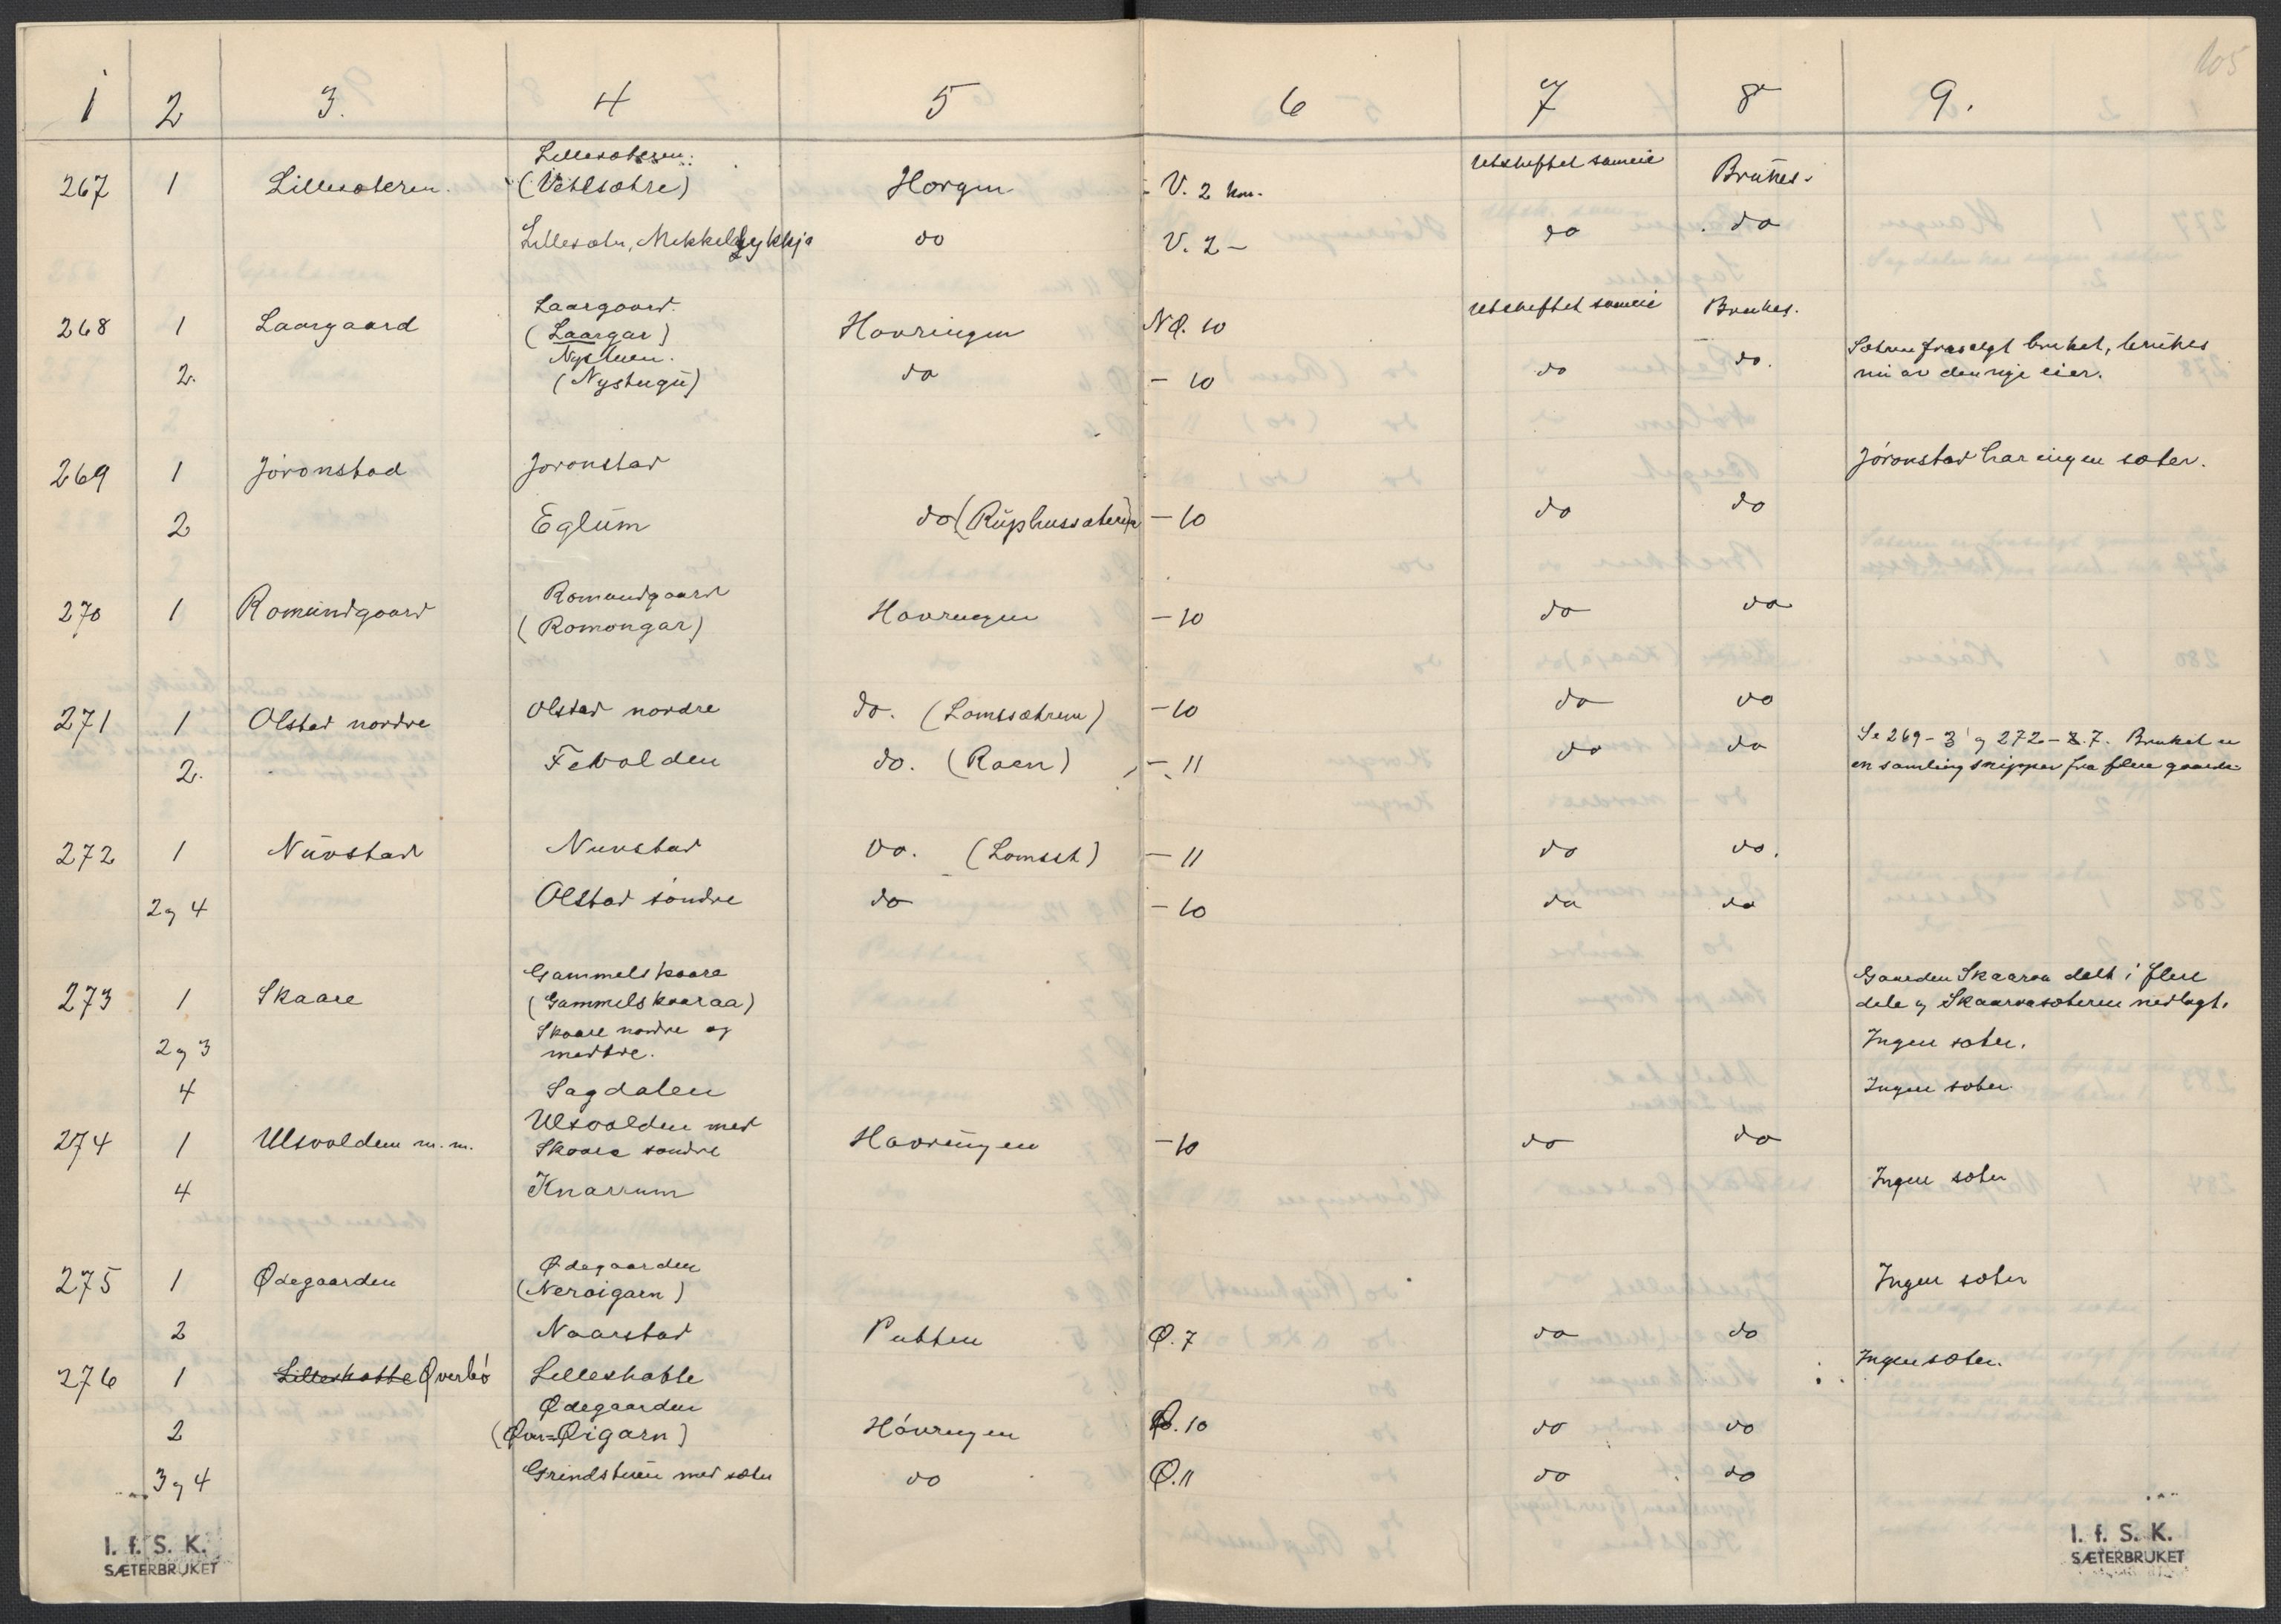 105
1 2 3. 4 5 6 7 8 9.
Lillesæteren.
267 1 Lillesæteren. (Vetlsætre) Horgen - V. 2 km. Utskiftet sameie Brukes.
Lillesæter, Mikkelslykkja do V. 2 - do do
Laargaard.
268 1 Laargaard (Laargar) Høvringen NØ. 10 Utskiftet sameie Brukes.
Nystuen.
2. (Nystugü) do - 10 do do. Sætren frasolgt bruket, brukes
nu av den nye eier.
269 1 Jøronstad Jøronstad Jøronstad har ingen sæter.
2 Eglüm do (Rüphussæterin) - 10 do do
Romundgaard
270 1 Romundgaard (Romongar) Høvringen - 10 do do
271 1 Olstad nordre Olstad nordre do. (Lomssætrene) - 10 do do
2. Tevolden do. (Raen) - 11 do do Se 269-3 og 272-7. Bruket er
en samling snipper fra flere gaarde
272 1 Nüvstad Nuvstad do. (Lomsst) - 11 do do.
2 og 4 Olstad søndre do - 10 do do
Gammelskaare
273 1 Skaare (Gammelskaaraa) Gaarden Skaaraa delt i flere
dele og Skaaraasæteren nedlagt.
Skaare nordre og
2 og 3 mædtre. Ingen sæter.
4 Sagdalen Ingen sæter
Ulsvolden med
274 1 Ulsvolden m. m. Skaare søndre Høvringen - 10 do do
4 Knarrum Ingen sæter
Ødegaarden
275 1 Ødegaarden (Neroigarn) Ingen sæter
2 Naarstad Putten Ø. 7 do do
276 1 Lilleskatte Øverbø Lilleskatte Ingen sæter.
Ødegaarden
2 (Øver=Øigarn) Høvringen Ø. 10 do do
3 og 4 Grindstuen med sæter do Ø. 11 do do
I. f. S. K.
SÆTERBRUKET
I. f. S. K.
SÆTERBRUKET